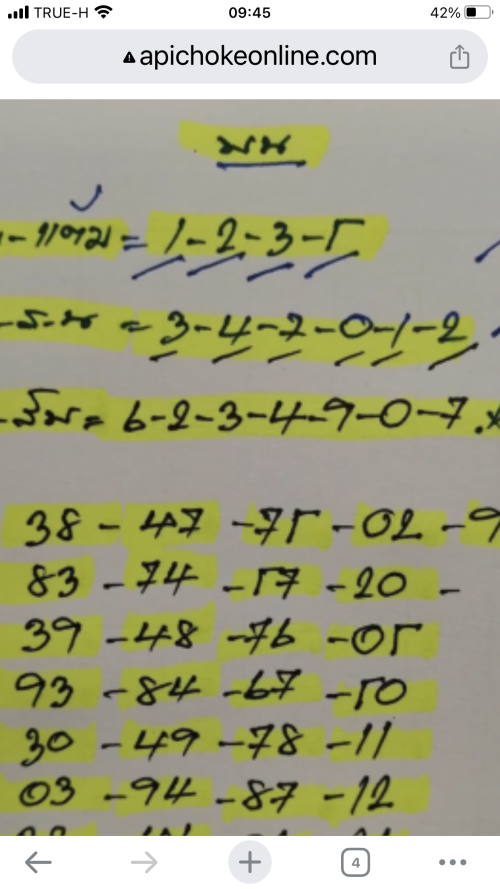 TRUE-H 09:45 42%
apichokeonline.com
= 1-2-3-5
-ร-น = 3-4-7-0-1-2
= 6-2-3-4-9-0-7.x
38 - 47 - 75 - 02 - 9
83 - 74 - 57 - 20 -
39 - 48 - 76 - 05
93 - 84 - 67 - 50
30 - 49 - 78 - 11
03 - 94 - 87 - 12
4